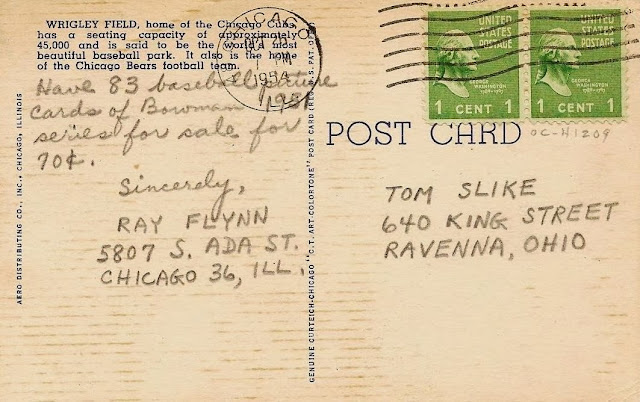 WRIGLEY FIELD, home of the Chicago Cubs,
has a seating capacity of approximately
45,000 and is said to be the world's most
beautiful baseball park. It also is the home
of the Chicago Bears football team.
Have 83 baseball picture
cards of Bowman 1951
series for sale for
70¢.
Sincerely,
RAY FLYNN
5807 S. ADA ST.
CHICAGO 36, ILL.
AERO DISTRIBUTING CO., INC., CHICAGO, ILLINOIS
GENUINE CURTEICH-CHICAGO "C.T. ART-COLORTONE" POST CARD (REG. U.S. PAT. OFF.)
CHICAGO
1954
UNITED
STATES
POSTAGE
GEORGE
WASHINGTON
1 CENT 1
UNITED
STATES
POSTAGE
GEORGE
WASHINGTON
1 CENT 1
POST CARD
OC-H1209
TOM SLIKE
640 KING STREET
RAVENNA, OHIO